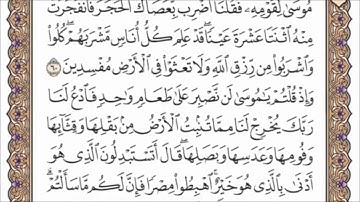 مُوسَىٰ لِقَوْمِهِۦ فَقُلْنَا ٱضْرِب بِّعَصَاكَ ٱلْحَجَرَ فَٱنفَجَرَتْ
مِنْهُ ٱثْنَتَا عَشْرَةَ عَيْنًا قَدْ عَلِمَ كُلُّ أُنَاسٍ مَّشْرَبَهُمْ كُلُوا۟
وَٱشْرَبُوا۟ مِن رِّزْقِ ٱللَّهِ وَلَا تَعْثَوْا۟ فِى ٱلْأَرْضِ مُفْسِدِينَ ٦٠
وَإِذْ قُلْتُمْ يَٰمُوسَىٰ لَن نَّصْبِرَ عَلَىٰ طَعَامٍ وَٰحِدٍ فَٱدْعُ لَنَا
رَبَّكَ يُخْرِجْ لَنَا مِمَّا تُنۢبِتُ ٱلْأَرْضُ مِنۢ بَقْلِهَا وَقِثَّآئِهَا
وَفُومِهَا وَعَدَسِهَا وَبَصَلِهَا قَالَ أَتَسْتَبْدِلُونَ ٱلَّذِى هُوَ
أَدْنَىٰ بِٱلَّذِى هُوَ خَيْرٌ ٱهْبِطُوا۟ مِصْرًا فَإِنَّ لَكُم مَّا سَأَلْتُمْ